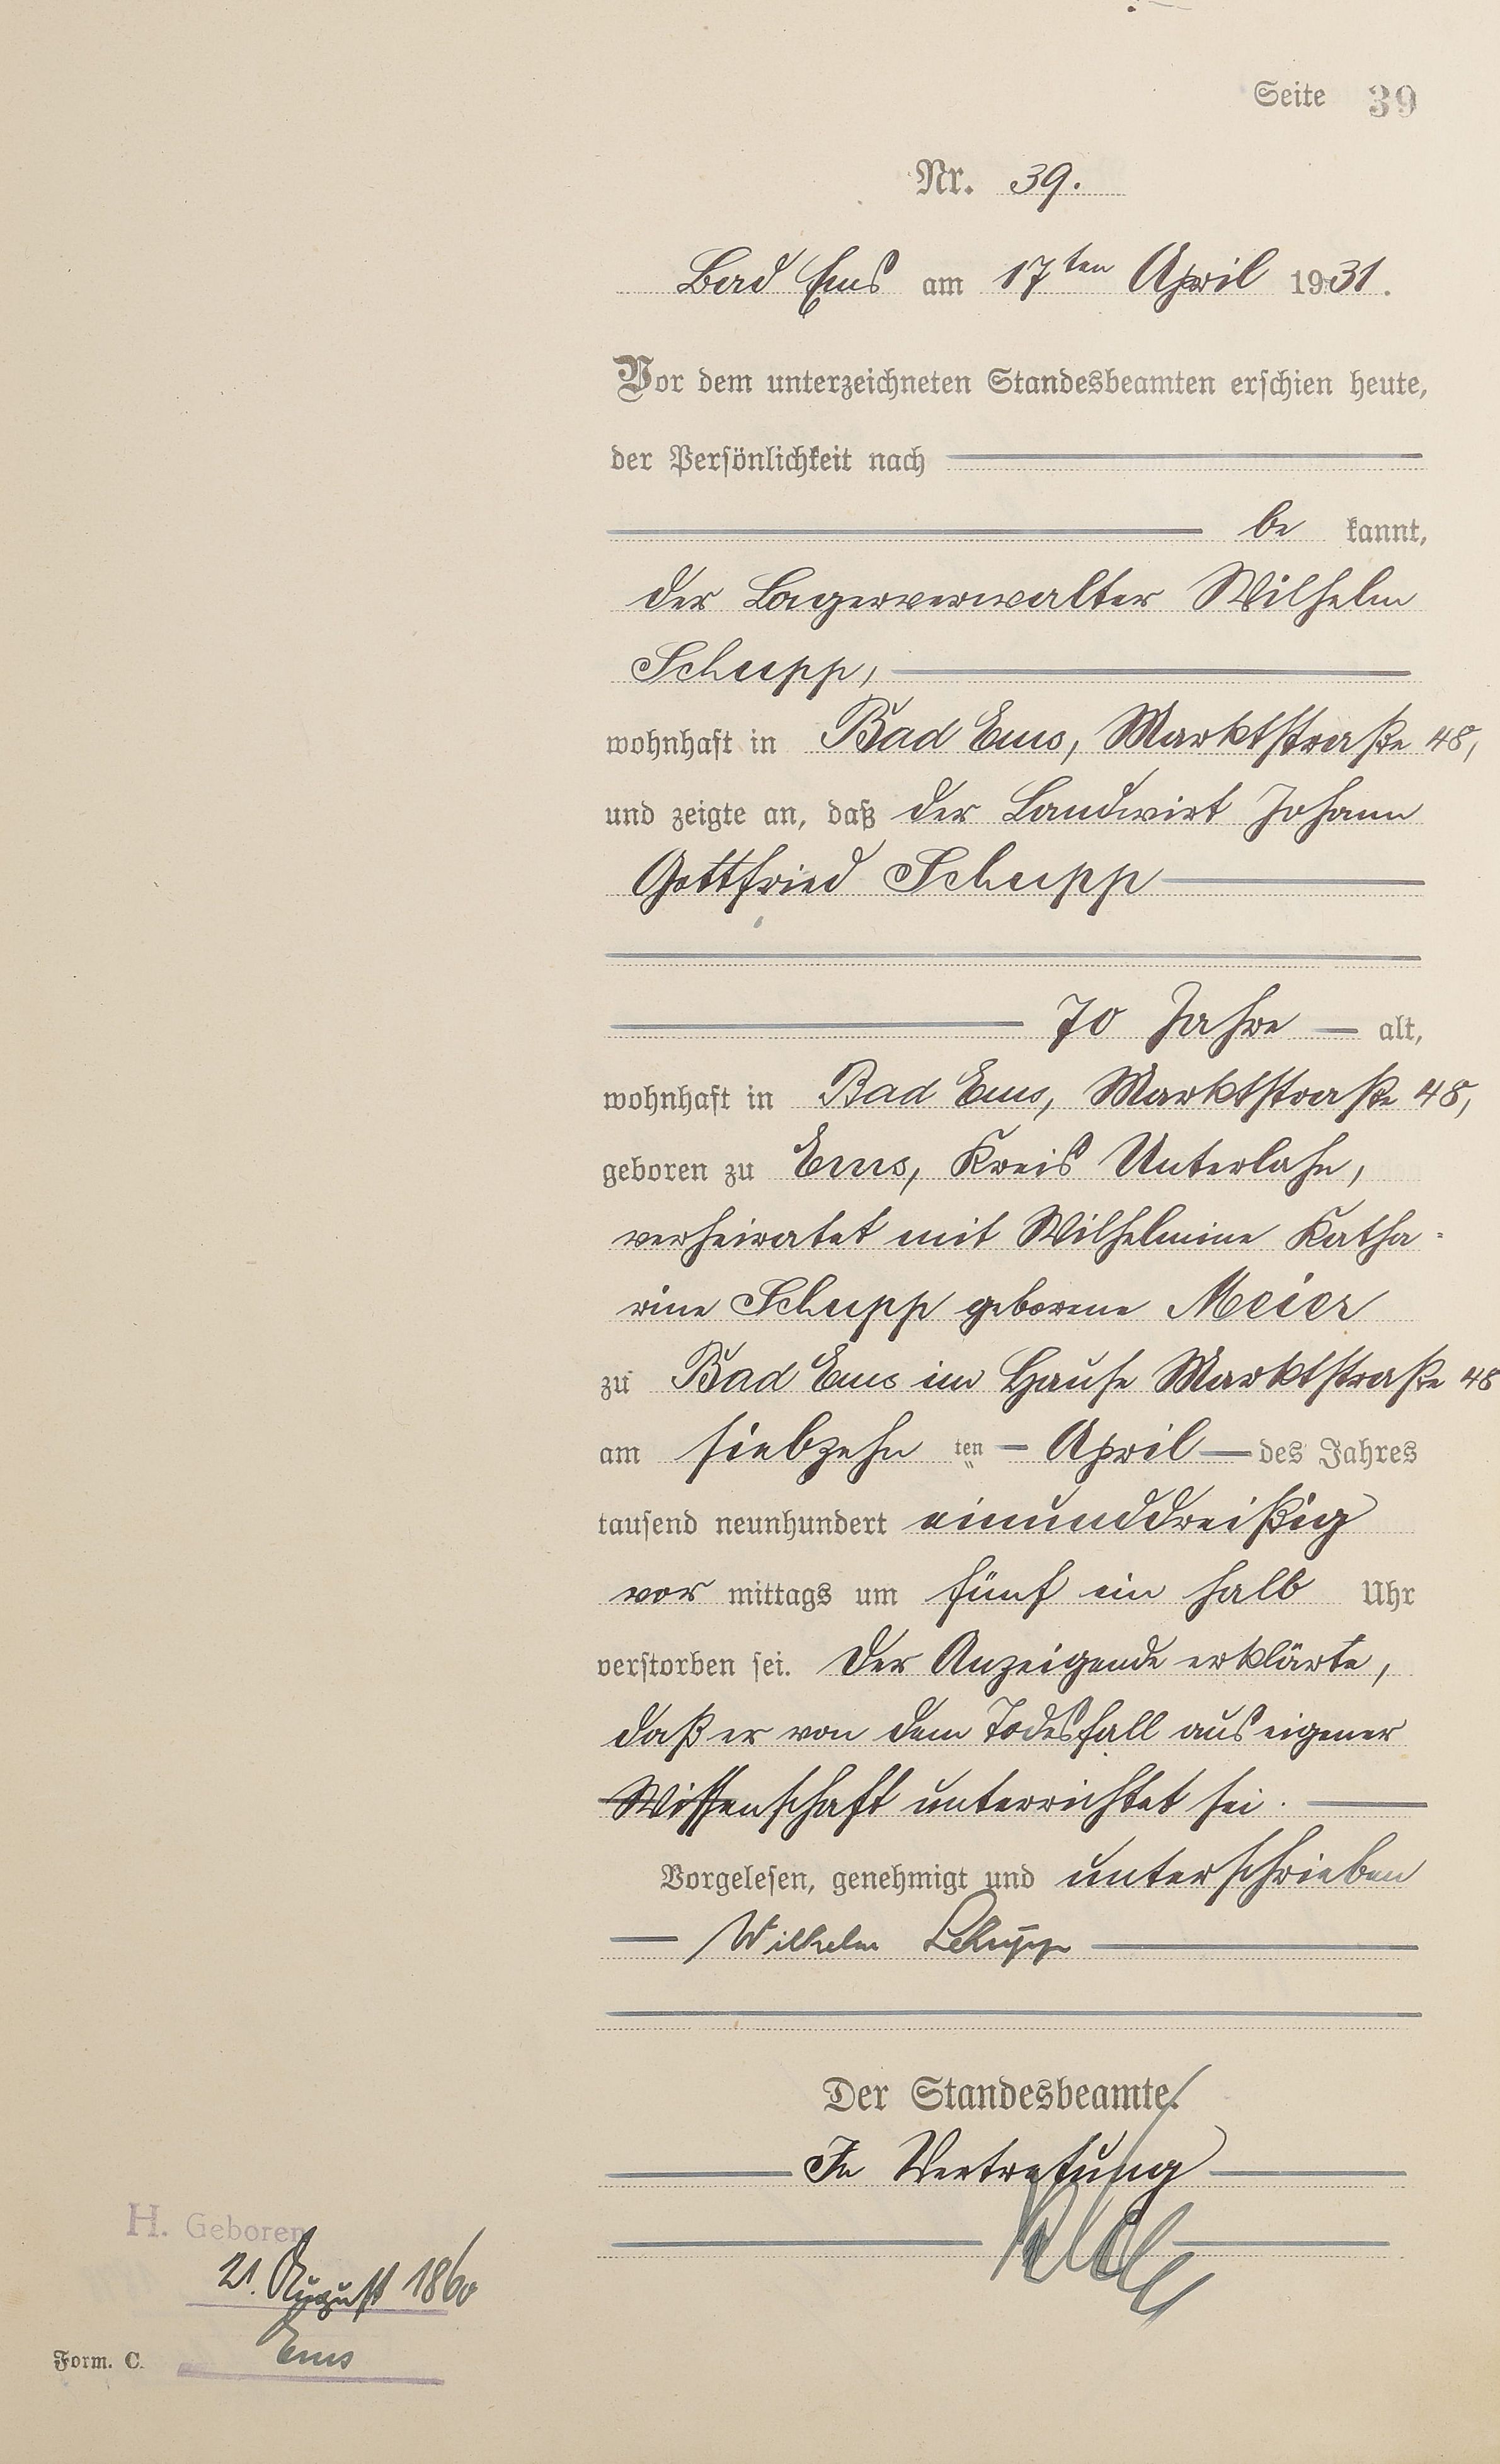 Seite 39
Nr. 39.
Bad Ems am 17ten April 1931.
Vor dem unterzeichneten Standesbeamten erschien heute,
der Persönlichkeit nach
be kannt,
der Lagerverwalter Wilhelm
Schupp,
wohnhaft in Bad Ems, Marktstraße 48,
und zeigte an, daß der Landwirt Johann
Gottfried Schupp
70 Jahre alt,
wohnhaft in Bad Ems, Marktstraße 48,
geboren zu Ems, Kreis Unterlahn,
verheiratet mit Wilhelmine Katha-
rine Schupp geborene Meier
zu Bad Ems im Hause Marktstraße 48
am siebzehn ten April des Jahres
tausend neunhundert einunddreißig
vor mittags um fünf ein halb Uhr
verstorben sei. Der Anzeigende erklärte,
daß er von dem Todesfall aus eigener
Wissenschaft unterrichtet sei.
Vorgelesen, genehmigt und unterschrieben
Wilhelm Schupp
Der Standesbeamte.
In Vertretung
H. Geboren
21. August 1860
Ems
Form. C.